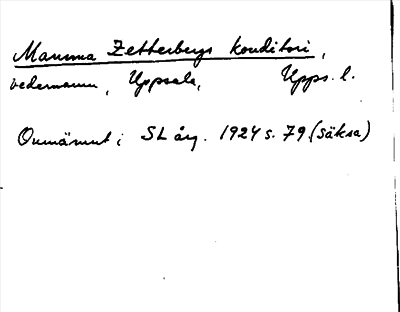 Mamma Zetterbergs konditori,
vedermamn, Uppsala, Upps. l.
Omnämnt i SL årg. 1924 s. 79 (Säksa)